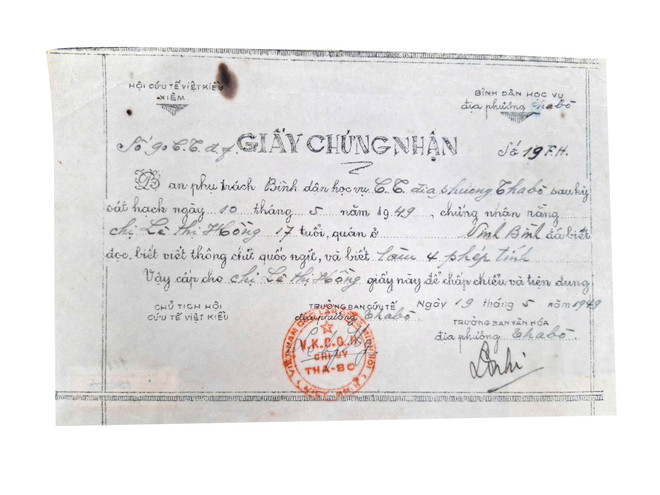 HỘI CỨU TẾ VIỆT KIỀU
XIÊM
BÌNH DÂN HỌC VỤ
địa phương Thabò
Số 90 C.T.
GIẤY CHỨNG NHẬN
Số 19 F.H.
Ban phụ trách Bình dân học vụ C.T. địa phương Thabò sau kỳ
sát hạch ngày 10 tháng 5 năm 1949, chứng nhận rằng
chị Lê thị Hồng 17 tuổi, quán ở Vĩnh Bình đã biết
đọc, biết viết thông chữ quốc ngữ, và biết làm 4 phép tính
Vậy cấp cho chị Lê thị Hồng giấy này để chấp chiếu và tiện dung
Ngày 19 tháng 5 năm 1949
CHỦ TỊCH HỘI
CỨU TẾ VIỆT KIỀU
TRƯỞNG BAN CỨU TẾ
địa phương Thabò
TRƯỞNG BAN VĂN HÓA
địa phương Thabò
V.K.C.Q.H
CHI ỦY
THA-BO